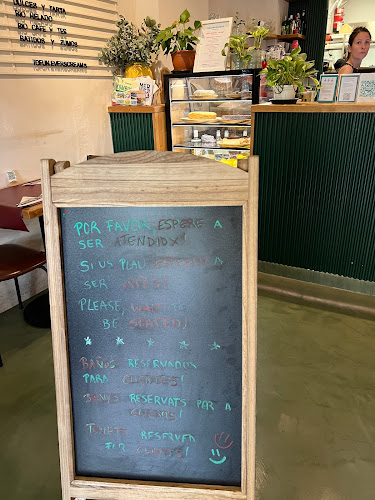 DULCES Y TARTA
BIO HELADO
BIO CAFE Y TES
BATIDOS Y ZUMOS
POR FAVOR, ESPERE A
SER ATENDIDX!
SI US PLAU A
SER
PLEASE, WAIT TO
BE SERVED!
BAÑOS RESERVADOS
PARA CLIENTES!
BANYS RESERVATS PER A
CLIENTS!
TOILETS RESERVED
FOR CLIENTS!